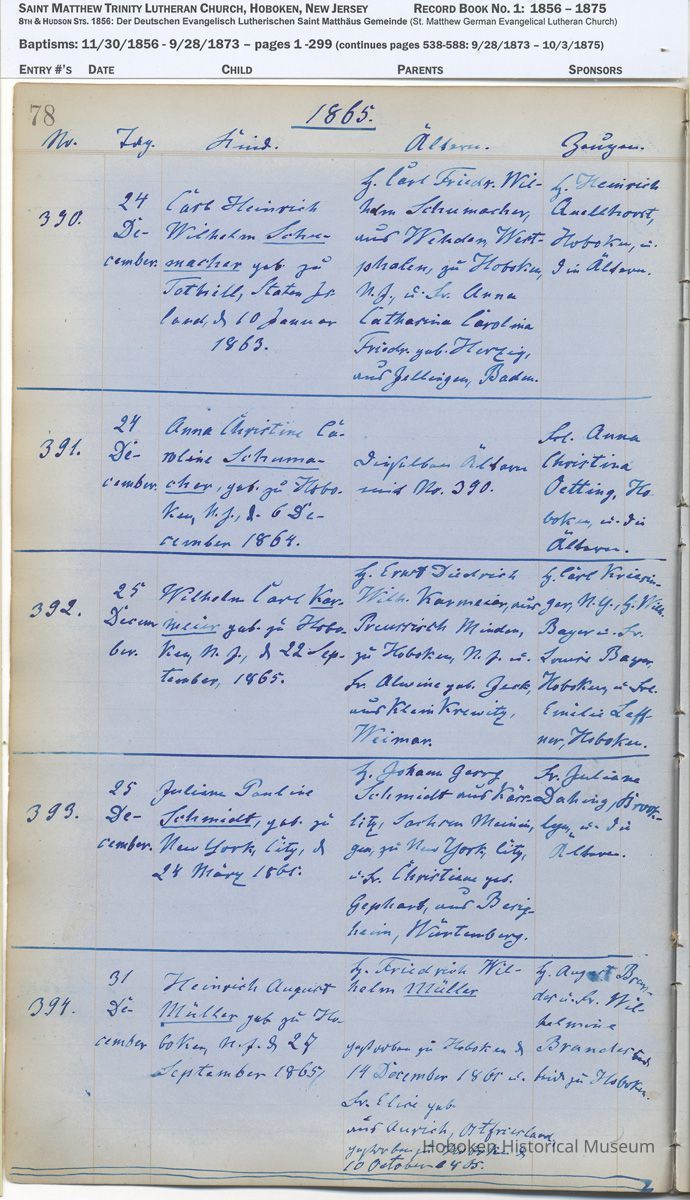 SAINT MATTHEW TRINITY LUTHERAN CHURCH, HOBOKEN, NEW JERSEY RECORD BOOK NO. 1: 1856 – 1875
8TH & HUDSON STS. 1856: Der Deutschen Evangelisch Lutherischen Saint Matthäus Gemeinde (St. Matthew German Evangelical Lutheran Church)
Baptisms: 11/30/1856 - 9/28/1873 – pages 1 -299 (continues pages 538-588: 9/28/1873 – 10/3/1875)
ENTRY #'S DATE CHILD PARENTS SPONSORS
78 1865.
No. Tag. Kind. Ältern. Zeugen.
390.
24
De-
cember.
Carl Heinrich
Wilhelm Schu-
macher geb. zu
Tothill, Staten Is-
land, d. 10 Januar
1863.
H. Carl Friedr. Wil-
helm Schumacher,
aus Wehden, West-
phalen, zu Hoboken,
N.J., u. Fr. Anna
Catharina Carolina
Friedr. geb. Herzig,
aus Baden.
H. Heinrich
Hoboken, u.
die Ältern.
391.
24
De-
cember.
Anna Christine Ca-
roline Schuma-
cher, geb. zu Hobo-
ken, N.J., d. 6 De-
cember 1864.
Dieselben Ältern
wie No. 390.
Frl. Anna
Christina
Oetting, Ho-
boken, u. die
Ältern.
392.
25
Decem
ber.
Wilhelm Carl Kor-
meier geb. zu Hobo-
ken, N.J., d. 22 Sep-
tember, 1865.
H. Ernst Diedrich
Wilh. Kormeier, aus
Preussisch Minden,
zu Hoboken, N.J. u.
Fr. Alwine geb. Jeck,
aus Klein
Weimar.
H. Carl Kriesin-
ger, N.Y., H. Wilh.
Bayer u. Fr.
Louise Bayer,
Hoboken, u. Frl.
Emilie Leff-
ner, Hoboken.
393.
25
De-
cember.
Juliane Pauline
Schmidt, geb. zu
New York City, d.
24 März 1865.
H. Johann Georg
Schmidt aus
Sachsen Meinin-
gen, zu New York City,
u. Fr. Christiane geb.
Gephart, aus
Würtemberg.
Fr. Juliane
Brook-
lyn, u. die
Ältern.
394.
31
De-
cember
Heinrich August
Müller geb. zu Ho-
boken, N.J. d. 27
September 1865,
H. Friedrich Wil-
helm Müller
gestorben zu Hoboken d.
14 December 1865 u.
Fr. Elise geb.
aus Aurich, Ostfriesland,
10 October
H. August Bran-
des u. Fr. Wil-
helmine
Brandes
beide zu Hoboken.
Hoboken Historical Museum